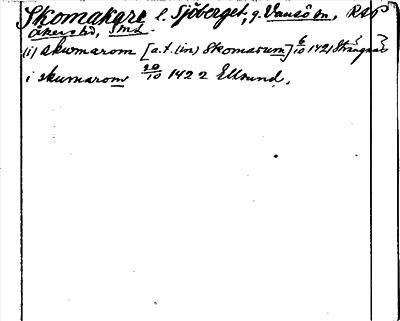 Skomakare l. Sjöberget, g. Vansö sn, RAP
Åkers hd, Sml.
(i) skumarom [a.t. (in) Skomarum] 6/10 1421 Strängnäs
i skumarom 20/10 1422 Ellsund.